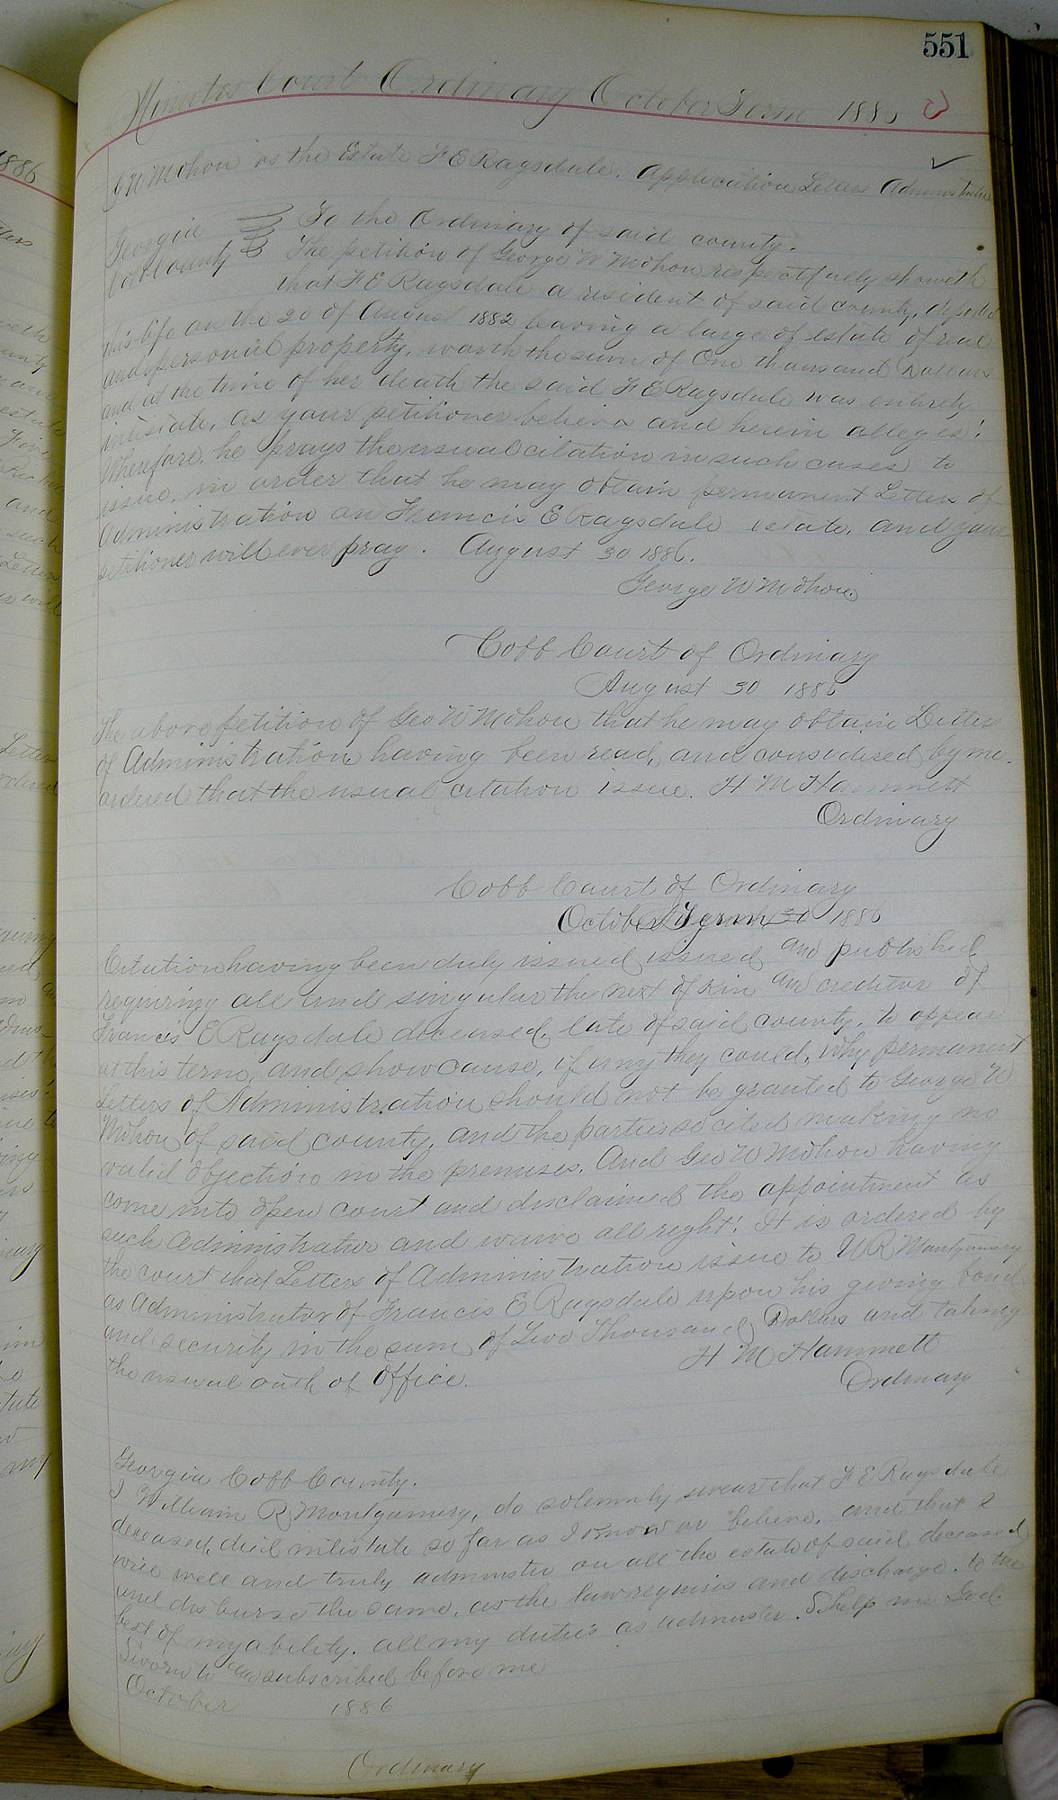 551
Minutes Court Ordinary October Term 1886
G W Mohon vs the Estate F E Ragsdale. Application Letters Administration
Georgia To the Ordinary of said county.
Cobb County The petition of George W Mohon respectfully showeth
that F E Ragsdale a resident of said county, departed
this life on the 20 of August 1882 leaving a large of estate of real
and personal property, worth the sum of One thousand Dollars
and at the time of her death the said F E Ragsdale was entirely
intestate, as your petitioner believes and herein alleges!
Wherefore he prays the usual citation in such cases to
issue, in order that he may obtain permanent Letters of
Administration on Francis E Ragsdale estate, and your
petitioner will ever pray. August 30 1886.
George W Mohon
Cobb Court of Ordinary
August 30 1886
The above petition of Geo W Mohon that he may obtain Letters
of Administration having been read, and considered by me.
ordered that the usual citation issue. H M Hammett
Ordinary
Cobb Court of Ordinary
October Term 1886
Citation having been duly issued issued and published
requiring all and singular the next of kin and creditor of
Francis E Ragsdale deceased, late of said county, to appear
at this term, and show cause, if any they could, why permanent
Letters of Administration should not be granted to George W
Mohon of said county, and the parties so cited making no
valid objection in the premises. And Geo W Mohon having
come into open court and disclaimed the appointment as
such Administrator and waive all right! It is ordered by
the court that Letters of Administration issue to W R Montgomery
as Administrator of Francis E Ragsdale upon his giving bond
and security in the sum of Two Thousand Dollars and taking
the usual oath of office. H M Hammett
Ordinary
Georgia Cobb County.
I William R Montgomery, do solemnly swear that F E Ragsdale
deceased, died intestate so far as I know or believe, and that I
will well and truly administer on all the estate of said deceased
and disburse the same, as the law requires and discharge, to the
best of my ability, all my duties as administer. So help me God.
Sworn to and subscribed before me
October 1886
Ordinary